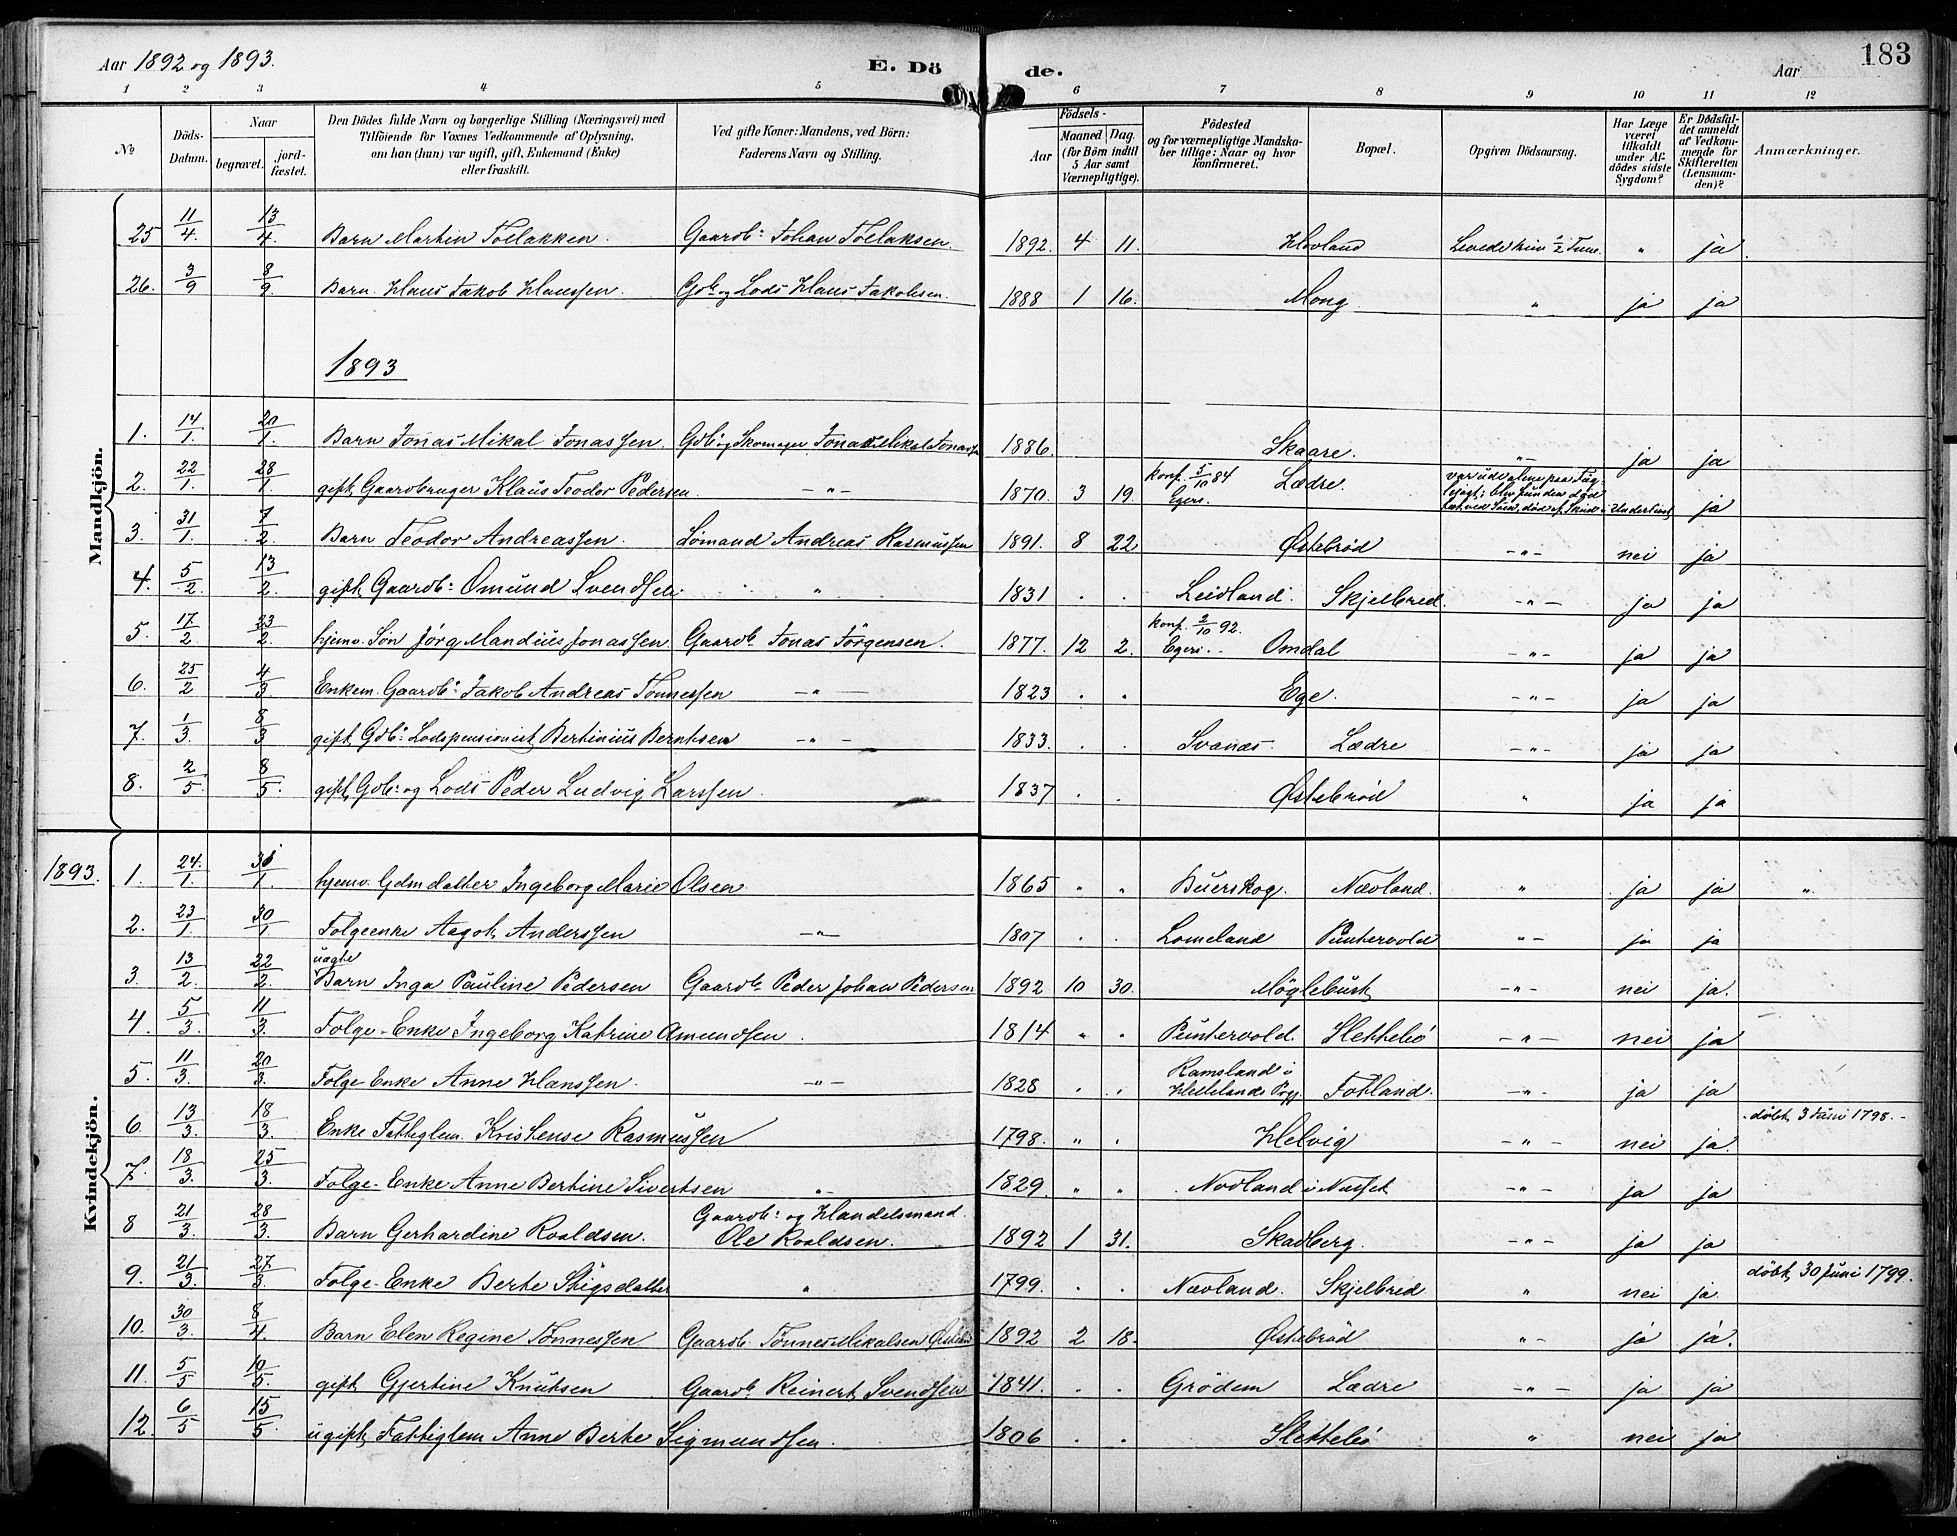 Aar 1892 og 1893. E. Dö de. Aar 183
1 2 3 4 5 6 7 8 9 10 11 12
No Döds-Datum. Naar begravet. jordfæstet. Den Dödes fulde Navn og borgerlige Stilling (Næringsvei) med Tilföiende for Voxnes Vedkommende af Oplysning, om han (hun) var ugift, gift, Enkemand (Enke) eller fraskilt. Ved gifte Koner: Mandens, ved Börn: Faderens Navn og Stilling. Födsels- Aar Maaned Dag. (for Börn indtil 5 Aar samt Værnepligtige). Födested og for værnepligtige Mandskaber tillige: Naar og hvor konfirmeret. Bopæl. Opgiven Dödsaarsag. Har Læge været tilkaldt under Afdödes sidste Sygdom? Er Dødsfaldet anmeldt af Vedkommende for Skifteretten (Lensmanden)? Anmærkninger.
Mandkjön.
25 11/4. 13/4. Barn Martin Tollakken. Gaardb: Johan Tollaksen. 1892. 4 11. Hovland Levede kun 1/2 Time. " ja
26. 3/9 8/9. Barn. Hans Jakob Hanssen. Gdb: og Lods Hans Jakobsen. 1888 1 16. Mong " ja ja
1893
1. 14/1. 20/1. Barn Jonas Mikal Jonassen. Gdb: og Skomager Jonas Mikal Jonassen 1886. Skaare. -"- ja ja
2. 22/1. 28/1. gift Gaardbruger Klaus Teodor Pedersen -"- 1870. 3 19. konf. 5/10 84 Egers. Lædre. var ude alene paa Fuglejagt; blev funden død ja
3. 31/1. 7/2 Barn Teodor Andreassen. Sømand Andreas Rasmussen 1891. 8 22 Østebrød -"- nei ja
4. 5/2. 13/2. gift Gaardb: Omund Svendsen. " 1831 . . Leidland. Skjelbred. -"- ja ja
5. 17/2. 23/2. hjemv. Søn Jørg Mandius Jonassen. Gaardb. Jonas Jörgensen. 1877. 12 2. konf. 2/10 92. Egers. Omdal -"- ja ja
6. 25/2 4/3 Enkem. Gaardb: Jakob Andreas Tønnessen -"- 1823 . . Ege. -"- ja ja
7. 1/3. 8/3 gift Gdb: Lodspensionist Bertinius Berntsen -"- 1833. . . Svanæs. Lædre -"- ja ja
8. 2/5 8/5. gift Gdb: og Lods Peder Ludvig Larssen. 1837 . . Østebrød " ja ja
Kvindekjön.
1893. 1. 24./1. 31/1. hjemv. Gdmdatter Ingeborg Marie Olsen 1865 " " Buerskog. Nævland. " ja ja "
2. 23/1. 30/1. Folgeenke Aagot Anderssen -"- 1807 . . Lomeland Puntervold -"- ja ja
3. 13/2. 22/2. uægte Barn Inga Pauline Pedersen Gaardb. Peder Johan Pedersen 1892 10 30. Møglebust -"- nei ja.
4. 5/3. 11/3. Folge-Enke Ingeborg Katrine Amundsen . 1814 " " Puntervold. Slettebø -"- nei ja
5. 11/3. 20/3. Folge Enke Anne Hanssen. -"- 1828 . . Ramsland i Hellelands Prgj. Fotland. -"- ja ja
6. 13/3. 18/3. Enke Fattiglem. Kristense Rasmussen 1798. " . Helvig -"- nei ja. døbt 3 Juni 1798.
7. 18/3. 25/3. Folge-Enke Anne Bertine Sivertsen " 1829. " " Nodland i -"- ja ja
8 21/3. 28/3. Barn Gerhardine Roaldsen. Gaardb: og Handelsmand. Ole Roaldsen. 1892 1 31. Skadberg. -"- ja ja
9. 21/3. 27/3. Folge-Enke Berte Stigsdatter " 1799. . . Nævland. Skjelbred " nei ja. døbt 30 Juni 1799.
10. 30/3. 8/4. Barn Elen Regine Tønnessen Gaardb. Tønnes Mikalsen 1892 2 18. Østebrød -"- ja ja.
11. 5/5 10/5. gift Gjertine Knutsen Gaardb. Reinert Svendsen 1841. . . Grødem Lædre -"- ja ja
12. 6/5 15/5. ugift Fattiglem Anne Berte Sigmundsen. 1806 . . Slettebø " nei ja